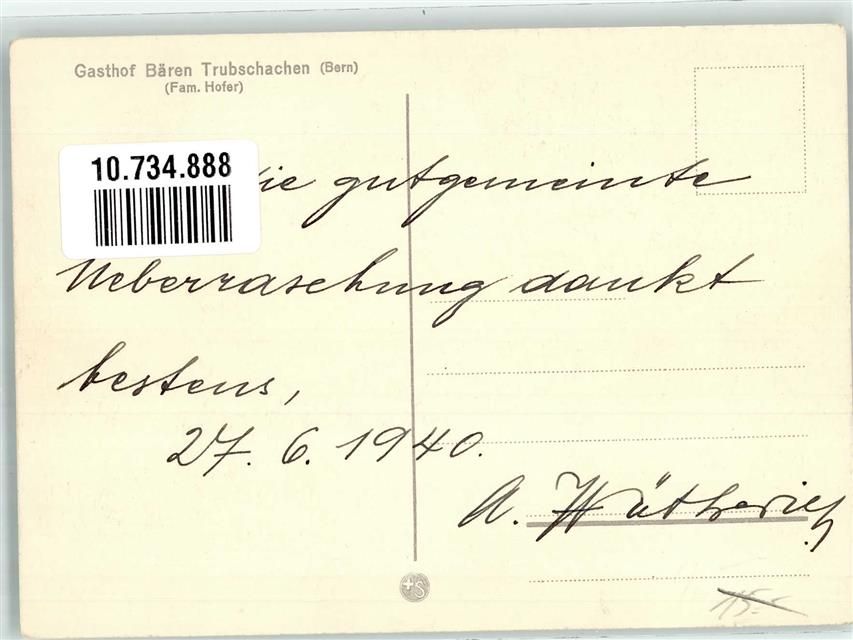 Gasthof Bären Trubschachen (Bern)
(Fam. Hofer)
10.734.888
die gutgemeinte
Ueberraschung dankt
bestens,
27. 6. 1940.
A. Wütherich
+S
15.-